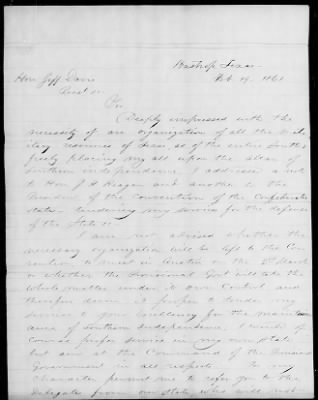 Bastrop Texas
Feb 19, 1861
Hon Jeff Davis
Prest &c
Sir
Deeply impressed with the
necessity of an organization of all the mili-
tary resources of Texas, as of the entire South &
freely placing my all upon the altar of
Southern independence I addressed a note
to Hon J H Reagan and another to the
President of the convention of the Confederate
States tendering my service for the defense
of the State &c
I am not advised whether the
necessary organization will be left to the Con-
vention to meet in Austin on the 2d March
or whether the Provisional Govt will take the
whole matter under its own Control and
therefore deem it proper to tender my
service to your Excellency for the mainten-
ance of Southern Independence. I would of
Course prefer service in my own State
but am at the Command of the
Government in all respects To my
character permit me to refer you to the
Delegates from our State, who will not